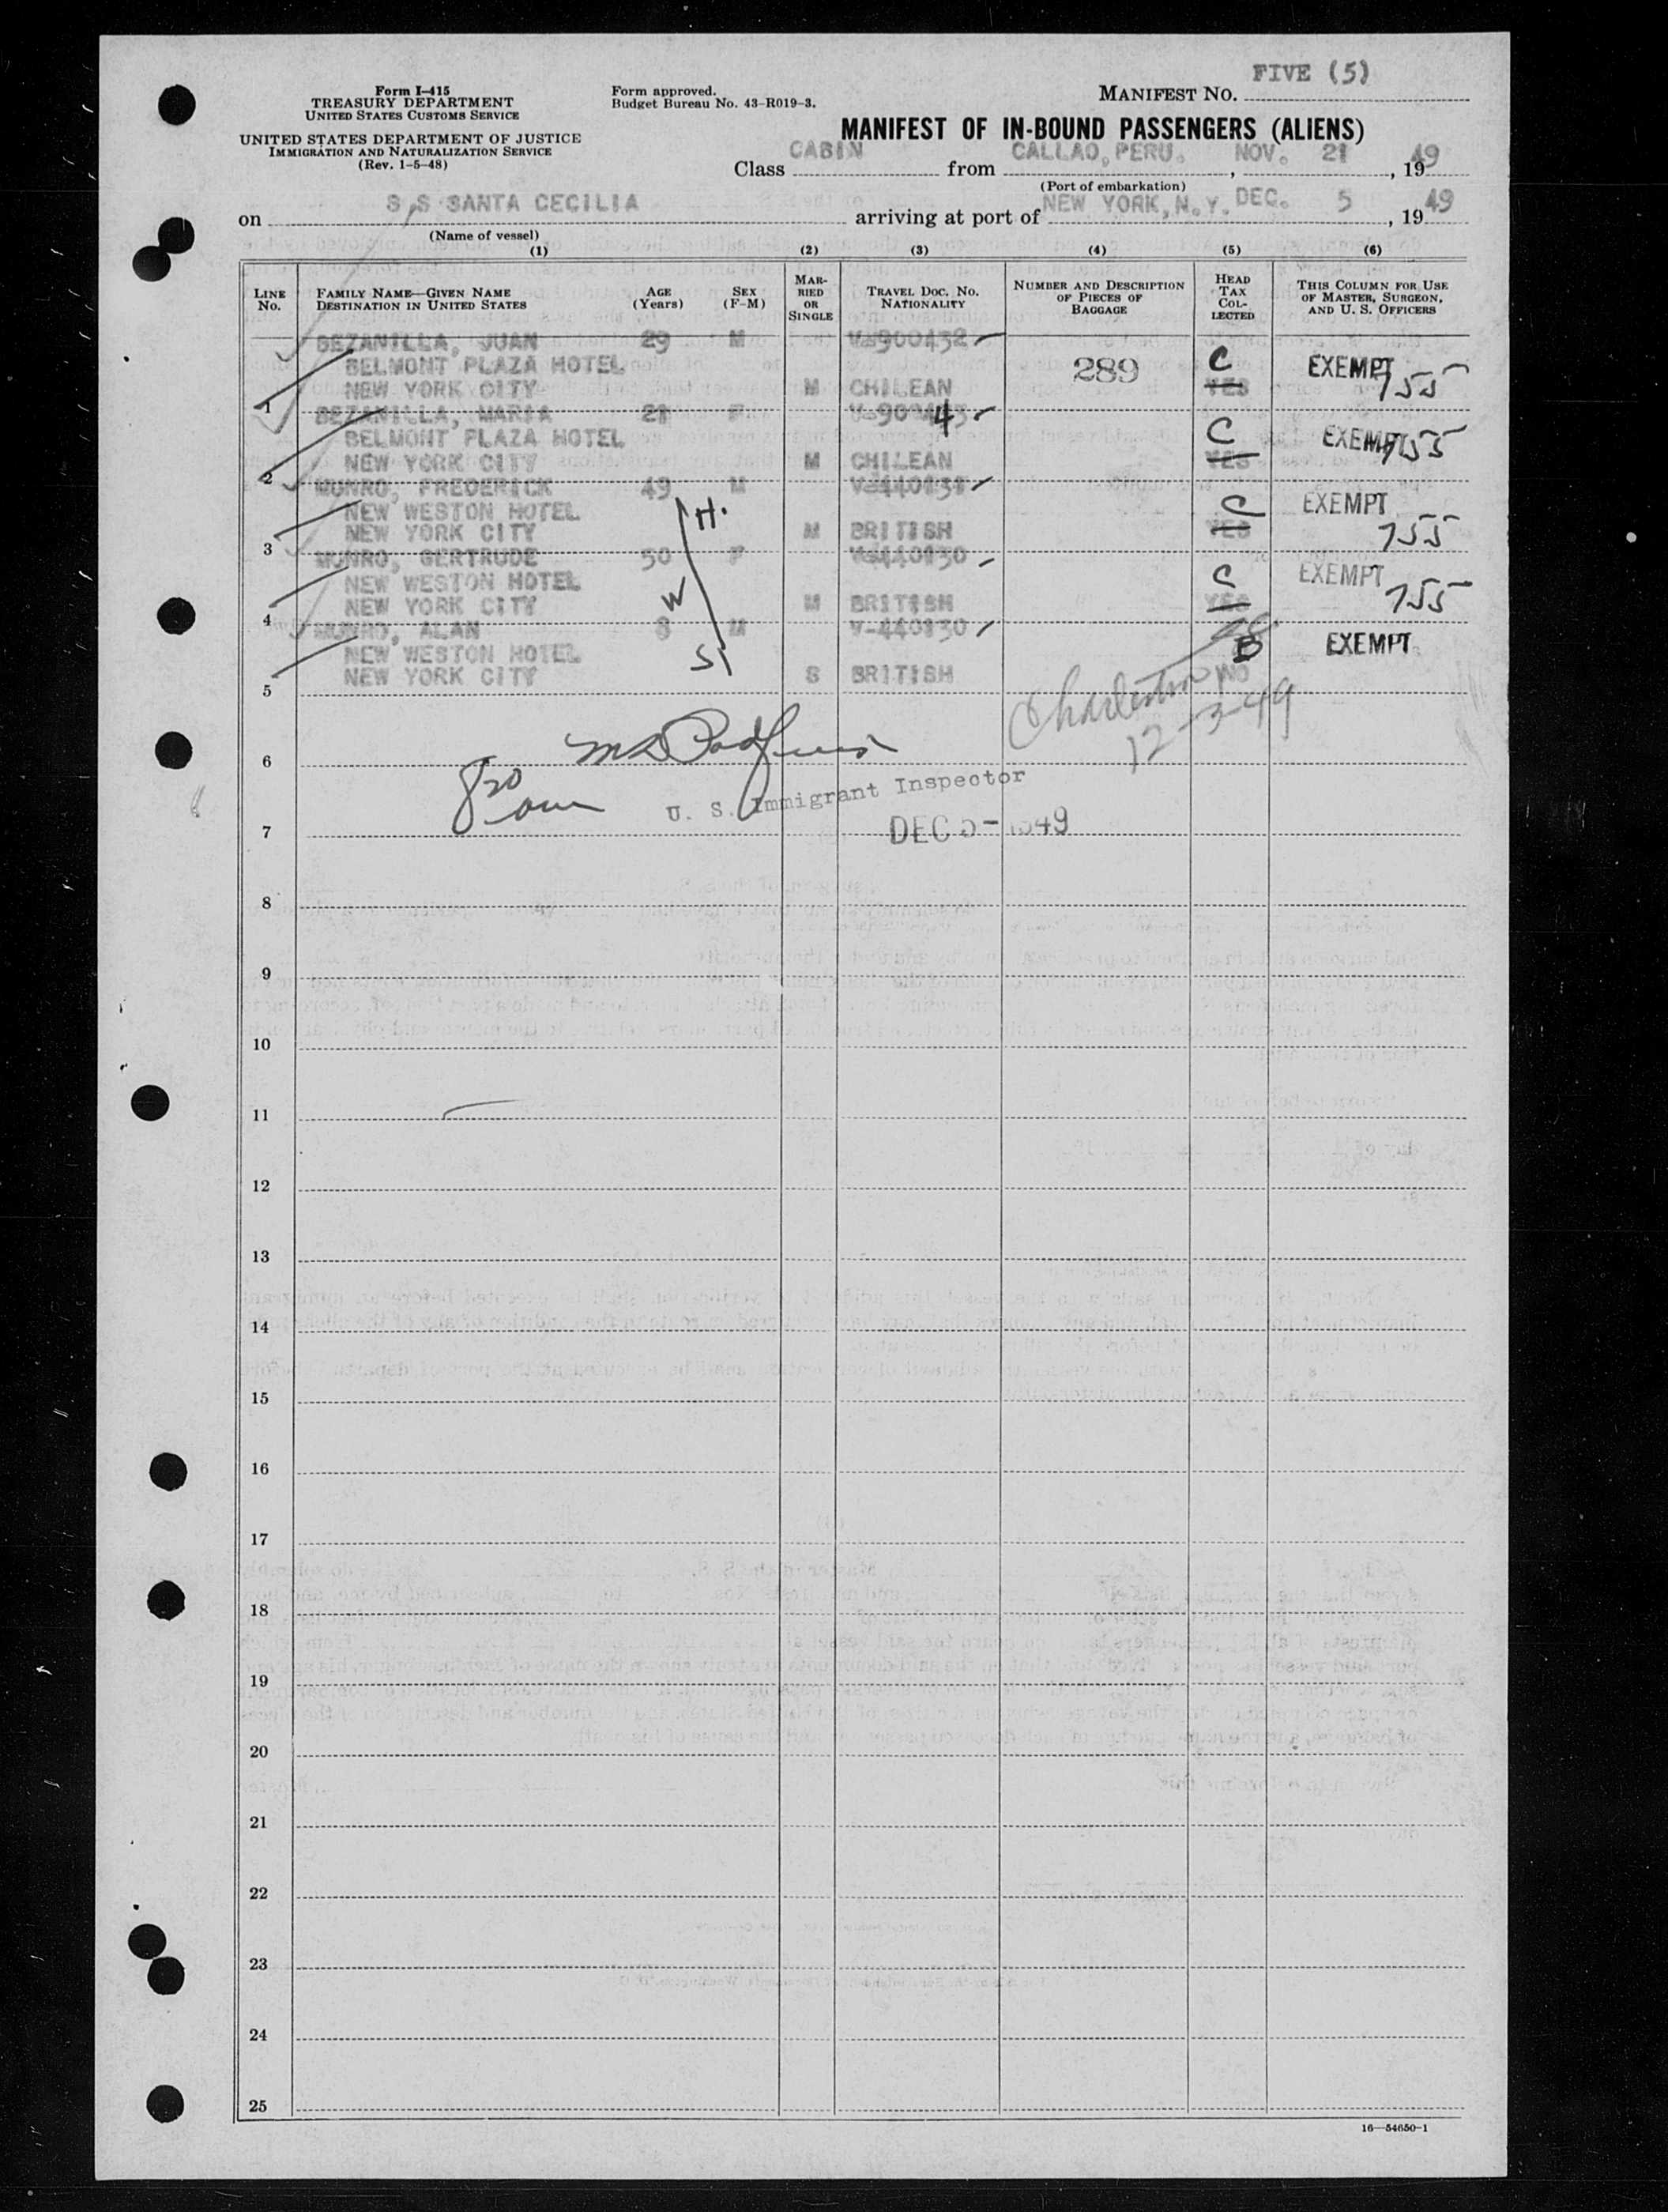 FIVE (5)
Form I-415
TREASURY DEPARTMENT
UNITED STATES CUSTOMS SERVICE
Form approved.
Budget Bureau No. 43-R019-3.
MANIFEST NO.
UNITED STATES DEPARTMENT OF JUSTICE
IMMIGRATION AND NATURALIZATION SERVICE
(Rev. 1-5-48)
MANIFEST OF IN-BOUND PASSENGERS (ALIENS)
Class CABIN from CALLAO, PERU. NOV. 21, 1949
(Port of embarkation)
on S S SANTA CECILIA arriving at port of NEW YORK, N.Y. DEC. 5, 1949
(Name of vessel)
(1) (2) (3) (4) (5) (6)
LINE No. FAMILY NAME—GIVEN NAME DESTINATION IN UNITED STATES AGE (Years) SEX (F-M) MARRIED OR SINGLE TRAVEL DOC. NO. NATIONALITY NUMBER AND DESCRIPTION OF PIECES OF BAGGAGE HEAD TAX COLLECTED THIS COLUMN FOR USE OF MASTER, SURGEON, AND U. S. OFFICERS
BEZANILLA, JUAN 29 M V-900432
BELMONT PLAZA HOTEL 289 C EXEMPT 755
1 NEW YORK CITY M CHILEAN YES
BEZANILLA, MARIA 21 F
BELMONT PLAZA HOTEL C EXEMPT 755
2 NEW YORK CITY M CHILEAN YES
MUNRO, FREDERICK 49 M V-440131
NEW WESTON HOTEL H. C EXEMPT
3 NEW YORK CITY M BRITISH YES 755
MUNRO, GERTRUDE 50 F V-440130
NEW WESTON HOTEL C EXEMPT
4 NEW YORK CITY W M BRITISH YES 755
MUNRO, ALAN 8 M V-440130
NEW WESTON HOTEL B EXEMPT
5 NEW YORK CITY S BRITISH NO
Charleston
12-3-49
6
830 am
U. S. Immigrant Inspector
7 DEC 5 - 1949
8
9
10
11
12
13
14
15
16
17
18
19
20
21
22
23
24
25
16—54650-1